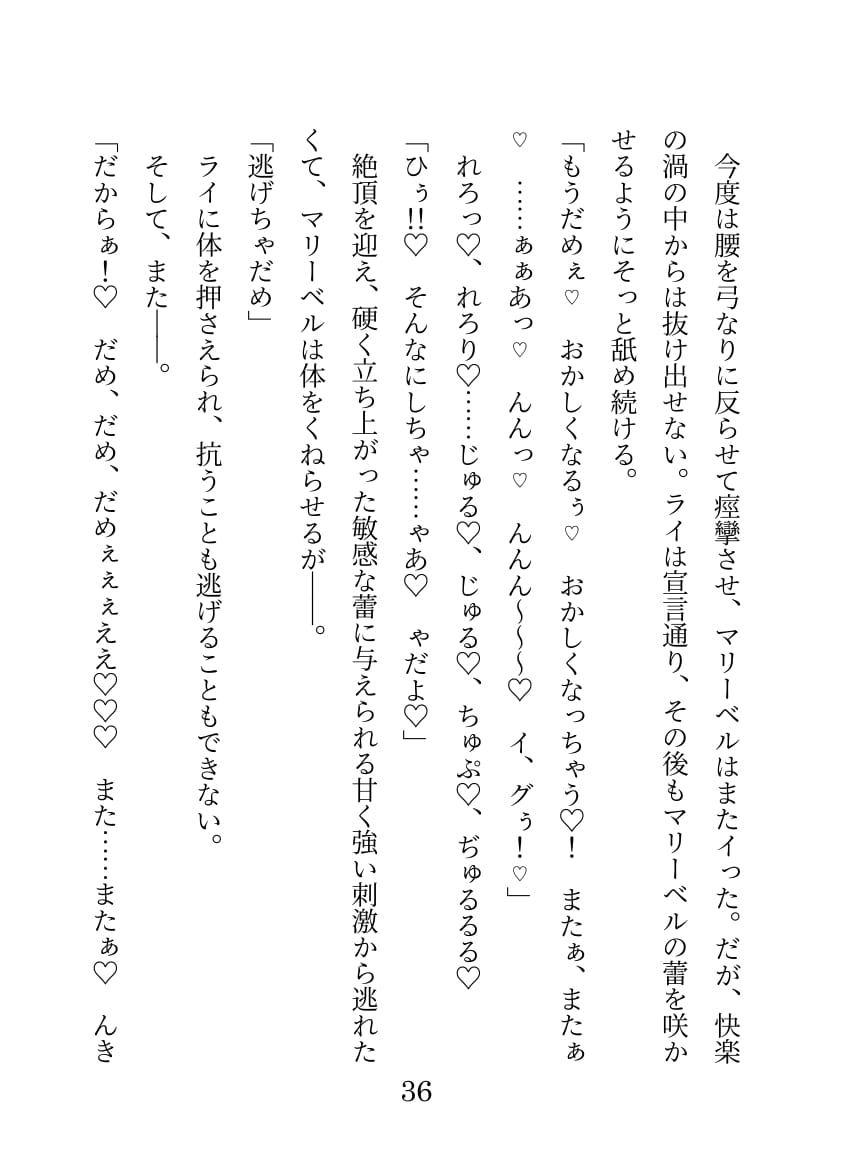 今度は腰を弓なりに反らせて痙攣させ、マリーベルはまたイった。だが、快楽
の渦の中からは抜け出せない。ライは宣言通り、その後もマリーベルの蕾を咲か
せるようにそっと舐め続ける。
「もうだめぇ♡　おかしくなるぅ♡　おかしくなっちゃう♡！　またぁ、またぁ
♡　……ぁぁあっ♡　んんっ♡　んんん～～～♡　イ、グぅ！♡」
れろっ♡、れろり♡……じゅる♡、じゅる♡、ちゅぷ♡、ぢゅるるる♡
「ひぅ!!♡　そんなにしちゃ……ゃあ♡　ゃだよ♡」
絶頂を迎え、硬く立ち上がった敏感な蕾に与えられる甘く強い刺激から逃れた
くて、マリーベルは体をくねらせるが――。
「逃げちゃだめ」
ライに体を押さえられ、抗うことも逃げることもできない。
そして、また――。
「だからぁ！♡　だめ、だめ、だめぇぇぇええ♡♡♡　また……またぁ♡　んき
36